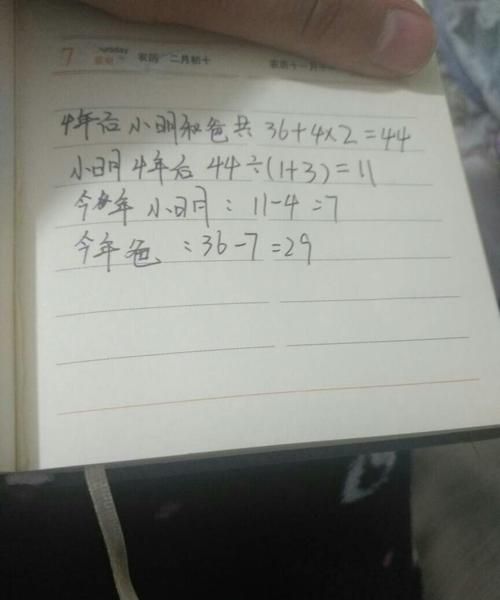 7 Sunday 农历 二月初十 农历十一月
4年后小明和爸共 36+4×2=44
小明4年后 44÷(1+3)=11
今年小明：11-4=7
今年爸：36-7=29